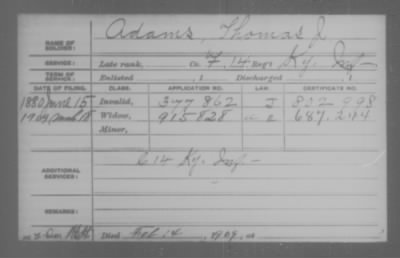 Adams, Thomas J
NAME OF SOLDIER:
SERVICE: Late rank, Co. F, 14 Reg't Ky. Inf
TERM OF SERVICE: Enlisted , 1 Discharged , 1
DATE OF FILING. CLASS. APPLICATION NO. LAW CERTIFICATE NO.
1880 June 15 Invalid, 377 862 J 822 998
1909 Mch 18 Widow, 915 828 687.294
Minor,
C 14 Ky. Inf -
ADDITIONAL SERVICES:
REMARKS:
Died Feb 14, 1909, at